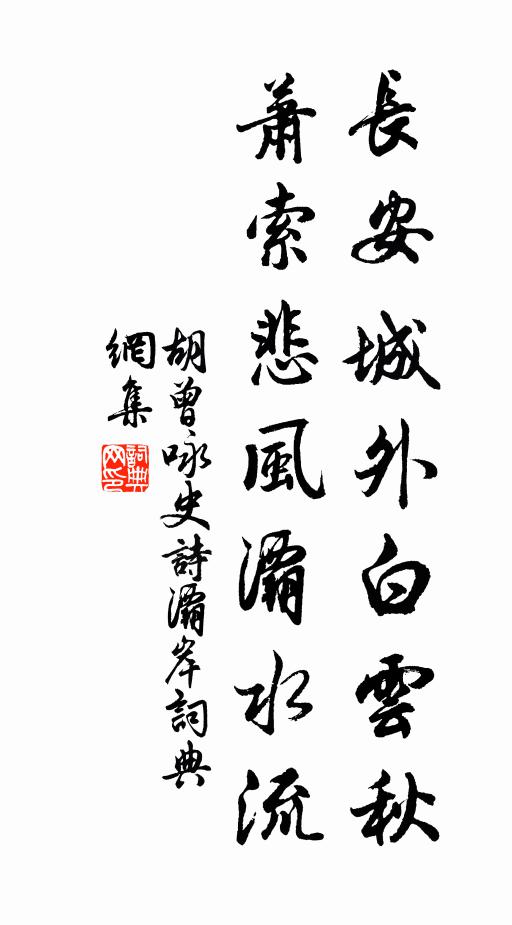 長安城外白雲秋
蕭索悲風灞水流
胡曾詠史詩灞岸詞典
網集
詞典網印